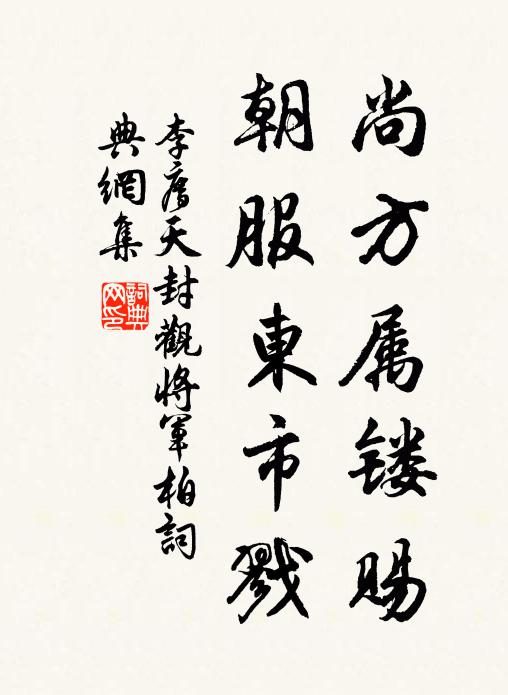 尚方属镂賜
朝服東市戮
李廌天封觀將軍柏詞
典網集
詞典
网印